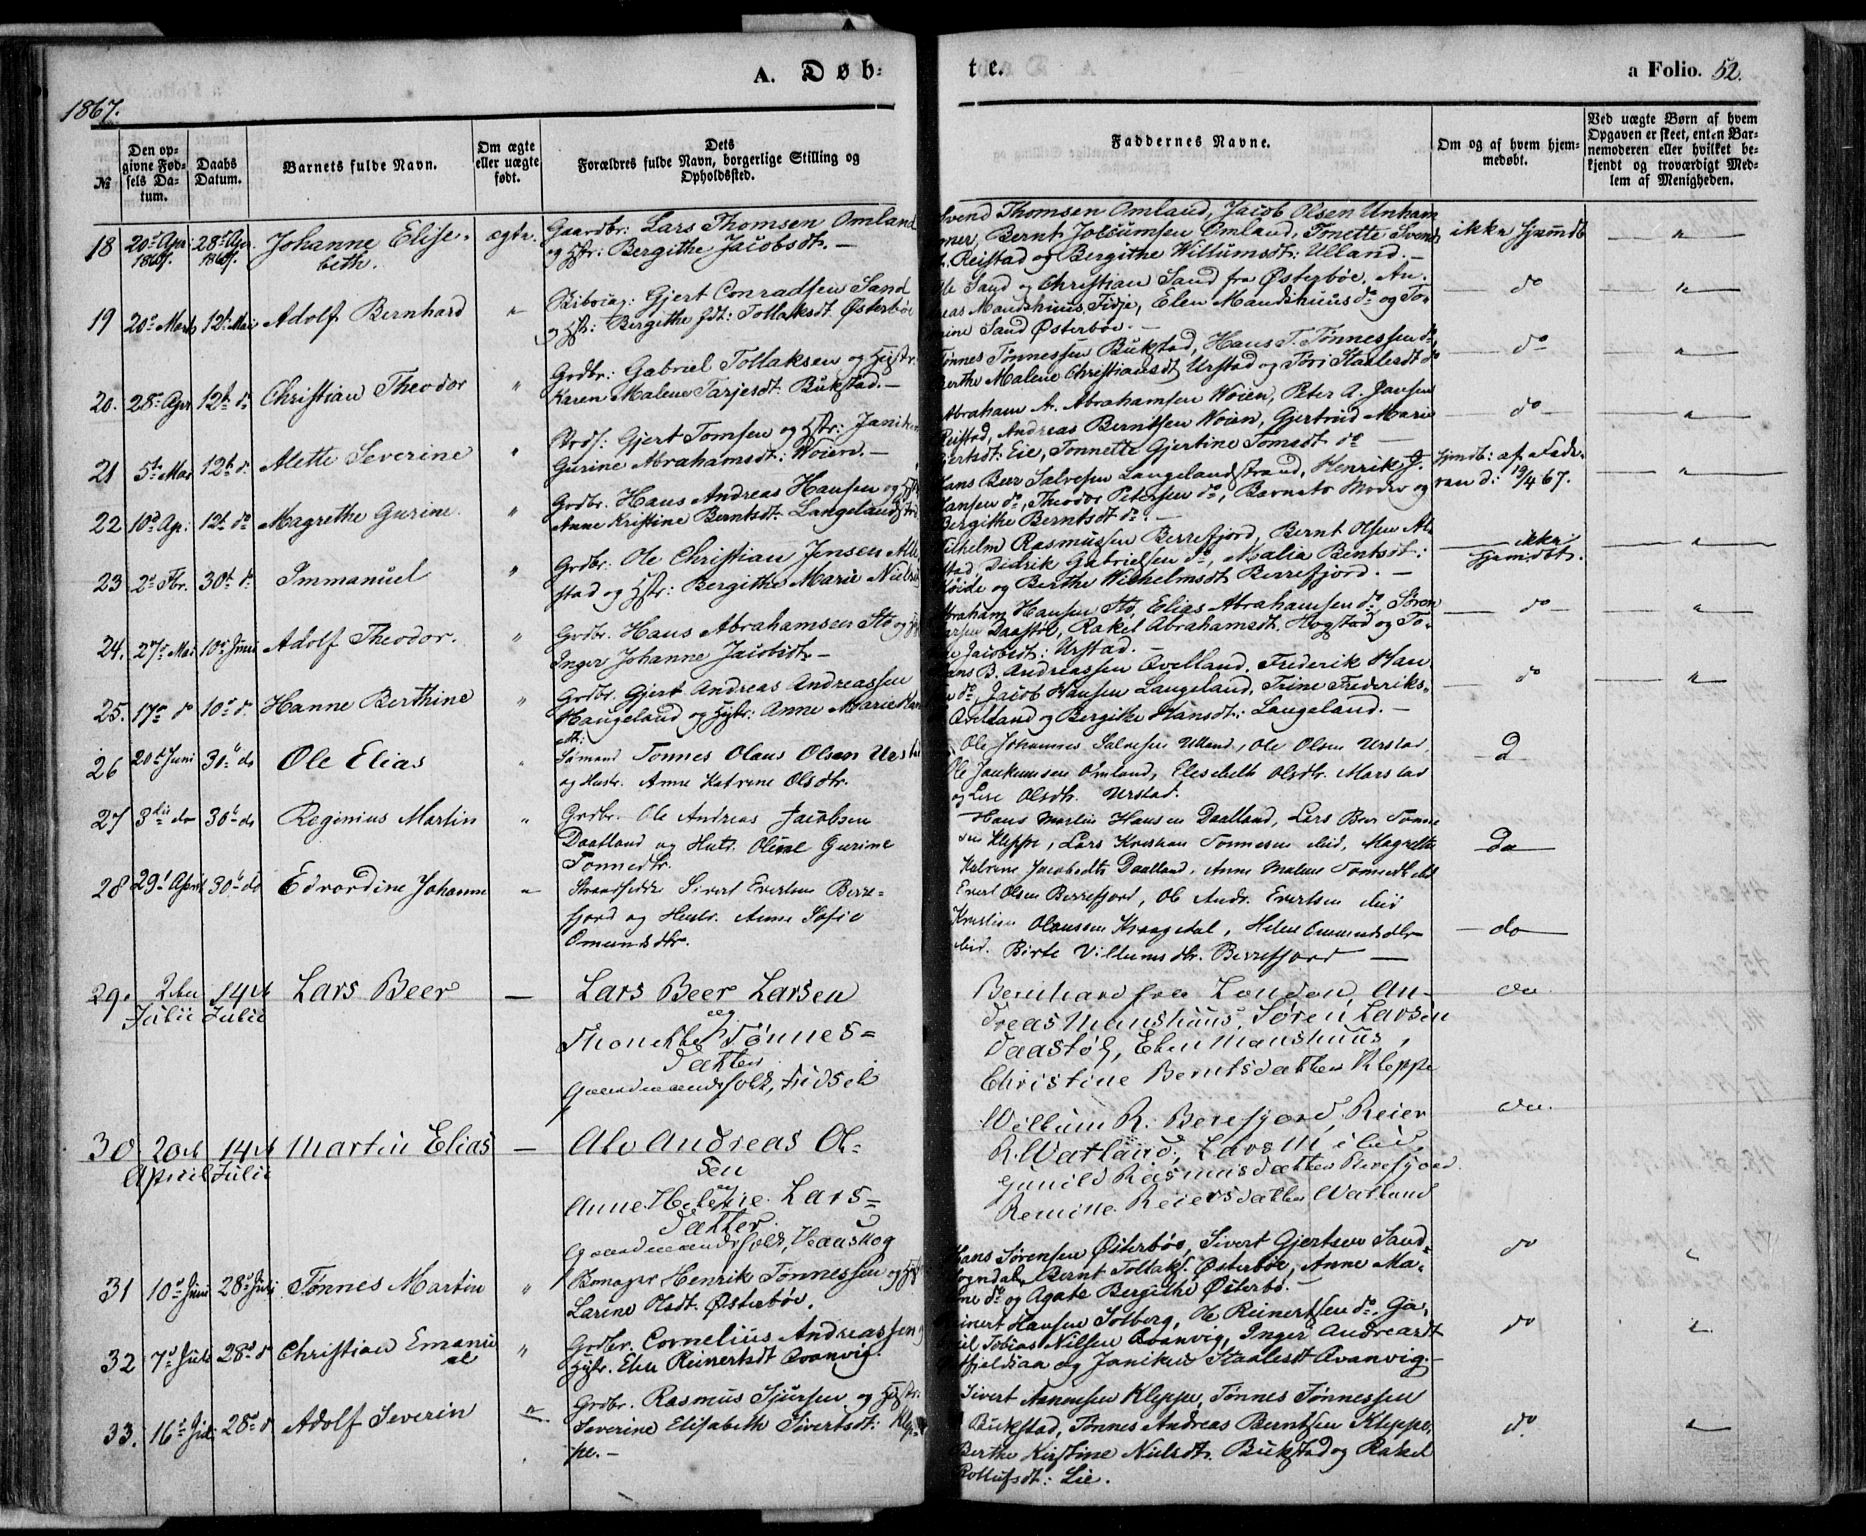 A. Døb:
te.
a Folio. 52.
1867.
№
Den op-
givne Fød-
sels Da-
tum.
Daabs
Datum.
Barnets fulde Navn.
Om ægte
eller uægte
født.
Dets
Forældres fulde Navn, borgerlige Stilling og
Opholdssted.
Faddernes Navne.
Om og af hvem hjem-
medøbt.
Ved uægte Børn af hvem
Opgaven er skeet, enten Bar-
nemoderen eller hvilket be-
kjendt og troværdigt Med-
lem af Menigheden.
18 20de Apr. 1867. 28de Ap. 1867. Johanne Elise- ægte. Gaardbr: Lars Thomsen Omland
beth. og Hstr: Bergithe Jacobsdt. —
Svend Thomsen Omland, Jacob Olsen Unham
mer, Bernt Jolsumsen Omland, Tonette Svends ikke hjemdb.
Reistad og Bergithe Willumsdt: Ulland. —
19 20de Marts 12te Mai Adolf Bernhard " Gjert Conradsen Sand
og Hst: Bergithe fdt: Tollaksdt Østerbøe
Sand og Christian Sand fra Østerbøe, An-
reas Mandshuus Fidje, Elen Mandshuus do og To- do
rine Sand Østerbøe. —
20. 28de Apr 12te do Christian Theodor " Grdbr: Gabriel Tollaksen og Hustr:
Karen Malene Tarjesdt. Bukstad. —
Tønnes Tønnessen Bukstad, Hans T. Tønnessen do
Berthe Malene Christiansdt Urstad og Tori Staalesdt do do
21 5te Mai 12te do Alette Severine " Gjert Tomsen og Hstr: Janiken
Gurine Abrahamsdt: Woien. —
Abraham A. Abrahamsen Woien, Peter A. Jansen
Reistad, Andreas Berntsen Woien, Gjertrud Marie do
Gjertsdt: Eie, Tonnette Gjertine Tomsdt do —
22 10de Ap. 12te do Magrethe Gurine. " Grdbr. Hans Andreas Hansen og Hst
Anne Kristine Berntsdt. Langelandstrd
Hans Beer Salvesen Langelandstrand, Henrik J. hjmdb: af Fade-
Hansen do, Theodor Petersen do, Barnets Moder og ren d: 19/4 67.
Bergithe Berntsdt do. —
23 2de Fbr. 30te do Immanuel " Grdbr: Ole Christian Jensen Alle
stad og Hstr: Bergithe Marie Niels
Wilhelm Rasmussen Berrefjord, Bernt Olsen Al-
stad, Didrik Gabrielsen do, Malia Bentsdt: ikke
Høide og Berthe Wilhelmsdt Berrefjord. — hjemdbt.
24. 27de Mai 10de Juni Adolf Theodor. " Grdbr. Hans Abrahamsen Stø og
Inger Johanne Jacobsdt. —
Abraham Hansen Stø, Elias Abrahamsen do, Søren
Larsen Daastøl, Rakel Abrahamsdt. Høgstad og To- do
Jacobsdt: Urstad. —
25. 17de do 10de do. Hanne Berthine " Grdbr. Gjert Andreas Andreassen
Haugeland og Hstr: Anne Marie Hans
dt:
Hans B. Andreassen Qvelland, Frederik Han
do, Jacob Hansen Langeland, Trine Frederiks- do
Qvelland og Bergithe Hansdt: Langeland. —
26 20de Juni 30te do Ole Elias " Sømand Tonnes Olaus Olsen Urstad
og Hustr. Anne Katrine Olsdtr.
Ole Johannes Salvesen Ulland, Ole Olsen Urstad,
Ole Jaukumsen Omland, Elesebeth Olsdtr. Marstad
og Lise Olsdtr. Urstad.
27 3die do 30te do Reginius Martin " Grdbr. Ole Andreas Jacobsen
Daatland og Hustr. Oline Gurine
Tonnesdtr.
Hans Martin Hansen Daatland, Lars Beer Tonne
sen Kleppe, Lars Kristian Tonnesen ibid, Magrethe do
Katrine Jacobsdtr Daatland, Anne Malene Tonnesdtr ibid
28 29de April 30te do Edvardine Johanne " Strandsidder Sivert Evertsen Berre-
fjord og Hustr. Anne Sofie
Omundsdtr.
Evert Olsen Berrefjord, Ole Andr. Evertsen ibid
Kristian Olaussen Kraagedal, Helene Omundsdtr do
ibid. Birte Villumsdtr. Berrefjord —
29. 2den Julii 14de Julii Lars Beer — Lars Beer Larsen
og
Thonette Tønnes-
datter
Gaardmandsfolk, Fidsel
Bernhard fra London, An- do
dreas Manshuus, Søren Larsen
Daastøl, Elen Manshuus,
Christine Berntsdatter Kleppe
30 20de April 14de Julii Martin Elias — Alv Andreas Ol-
sen
og
Anne Helene Lars-
datter.
Gaardmandsfolk, Hauskog
Willum R. Berefjord, Reier do.
R. Watland, Lars M ibid
Gunild Rasmusdatter Berefjord
Remine Reiersdatter Watland
31 10de Juni 28de Juli Tønnes Martin " Henrik Tønnessen og Hst
Larine Olsdt. Østerbøe.
Hans Sørensen Østerbøe, Sivert Gjertsen Sand- do "
Bernt Tollaks. Østerbøe, Anne Ma-
ne do og Agate Bergithe Østerbø. —
32 7de Juli 28de do Christian Emanu " Grdbr. Cornelius Andreassen
el Hstr. Elen Reinertsdt Qvanvig.
Sivert Hansen Solberg, Ole Reinertsen do, Ga- do "
Tobias Nilsen Qvanvig, Inger Andreasdt
og Janiken Staalesdt Qvanvig. —
33. 16de Juli 28de do Adolf Severin " Grdbr. Rasmus Sjursen og Hstr:
Severine Elisabeth Sivertsdt: Klep-
pe. —
Sivert Aanensen Kleppe, Tønnes Tønnessen
Bukstad, Tønnes Andreas Berntsen Kleppe, do. "
Berthe Kirstine Nielsdt. Bukstad og Rakel
Rollufsdt: Lie.